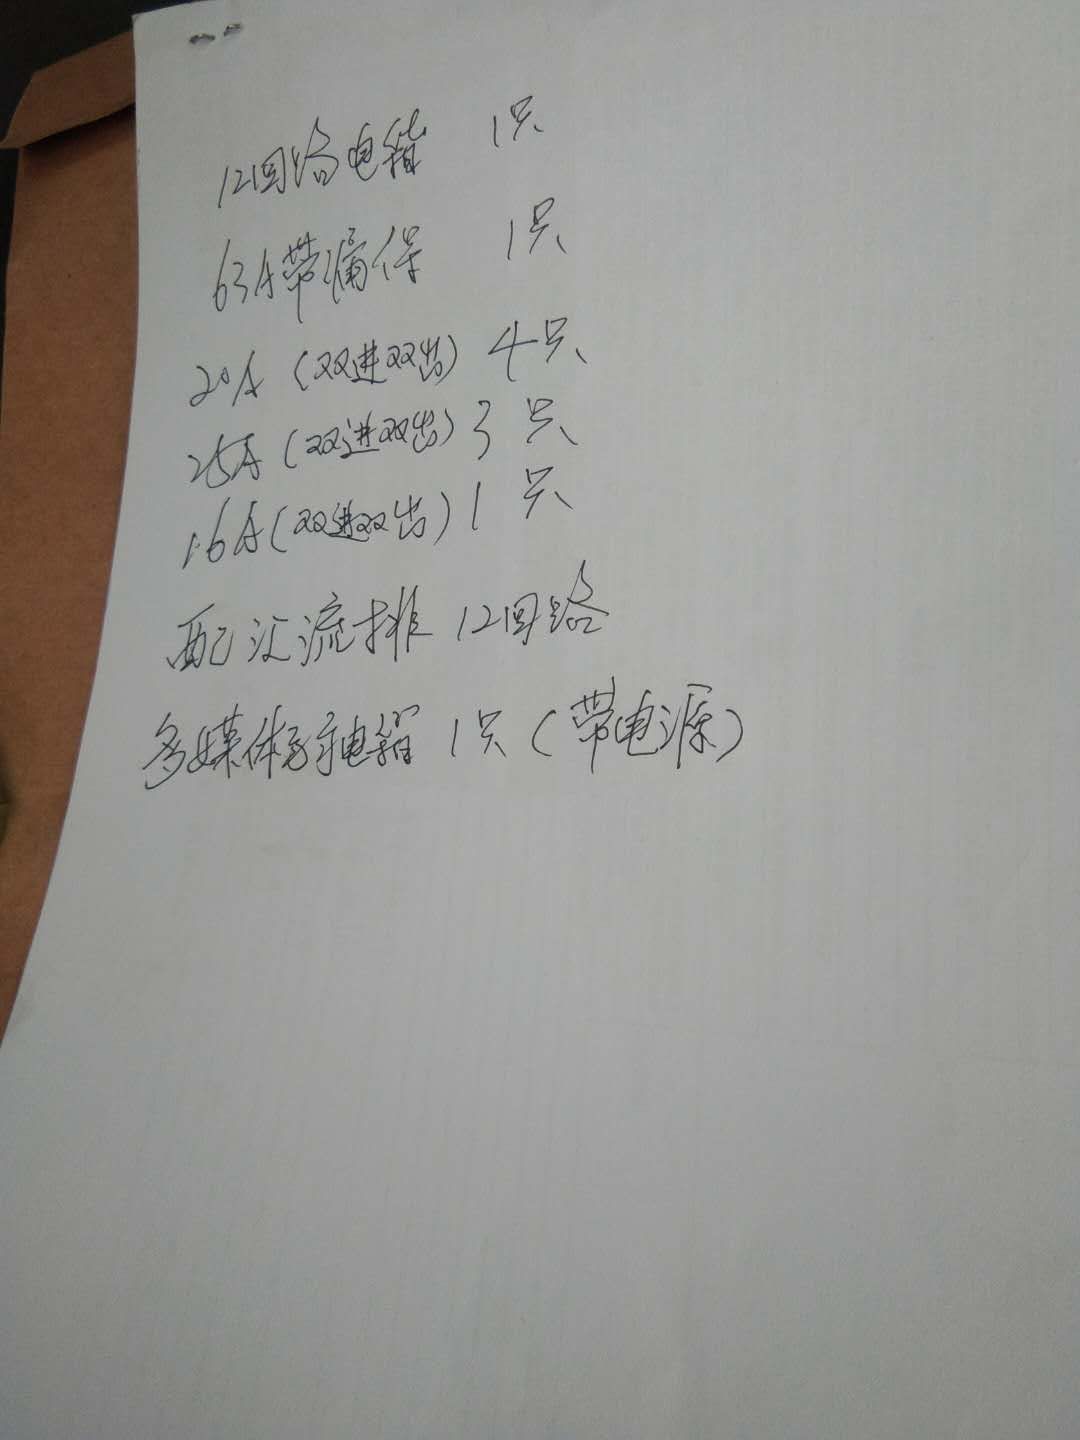 12回路电箱 1只
63A带漏保 1只
20A (双进双出) 4只
25A (双进双出) 3只
16A (双进双出) 1只
配汇流排 12回路
多媒体电箱 1只 (带电源)